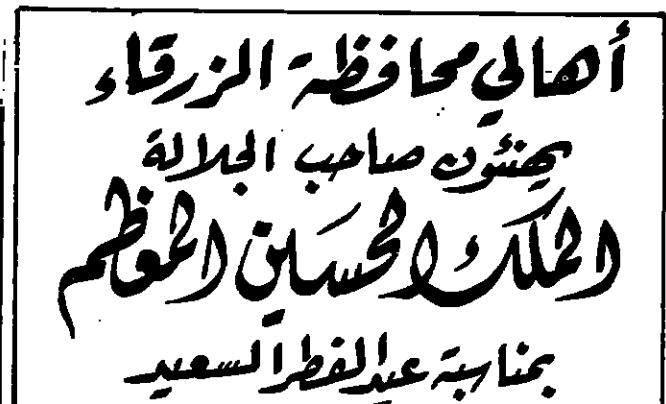 أهالي محافظة الزرقاء
يهنئون صاحب الجلالة
الملك الحسين المعظم
بمناسبة عيد الفطر السعيد